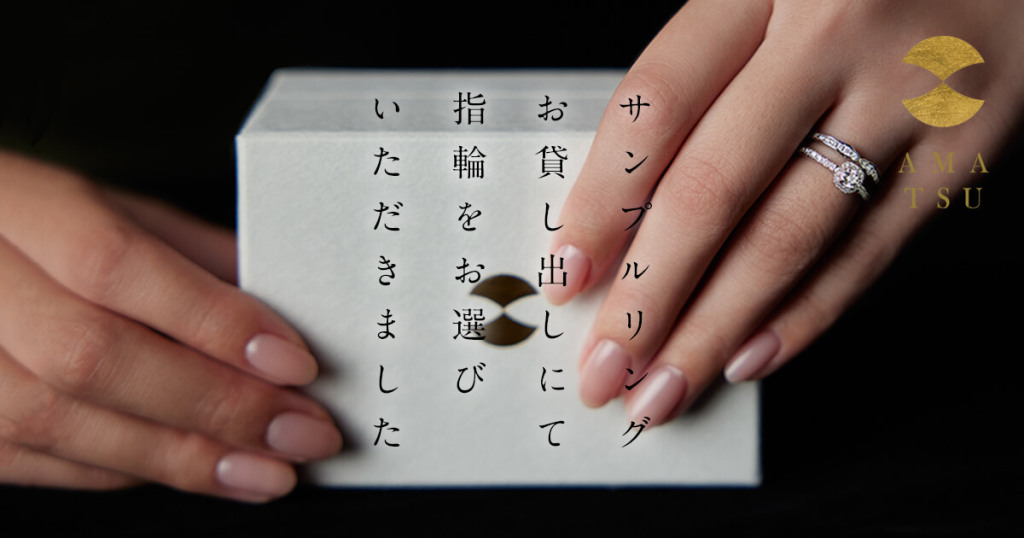 サンプルリング
お貸し出しにて
指輪をお選び
いただきました
AMA
TSU